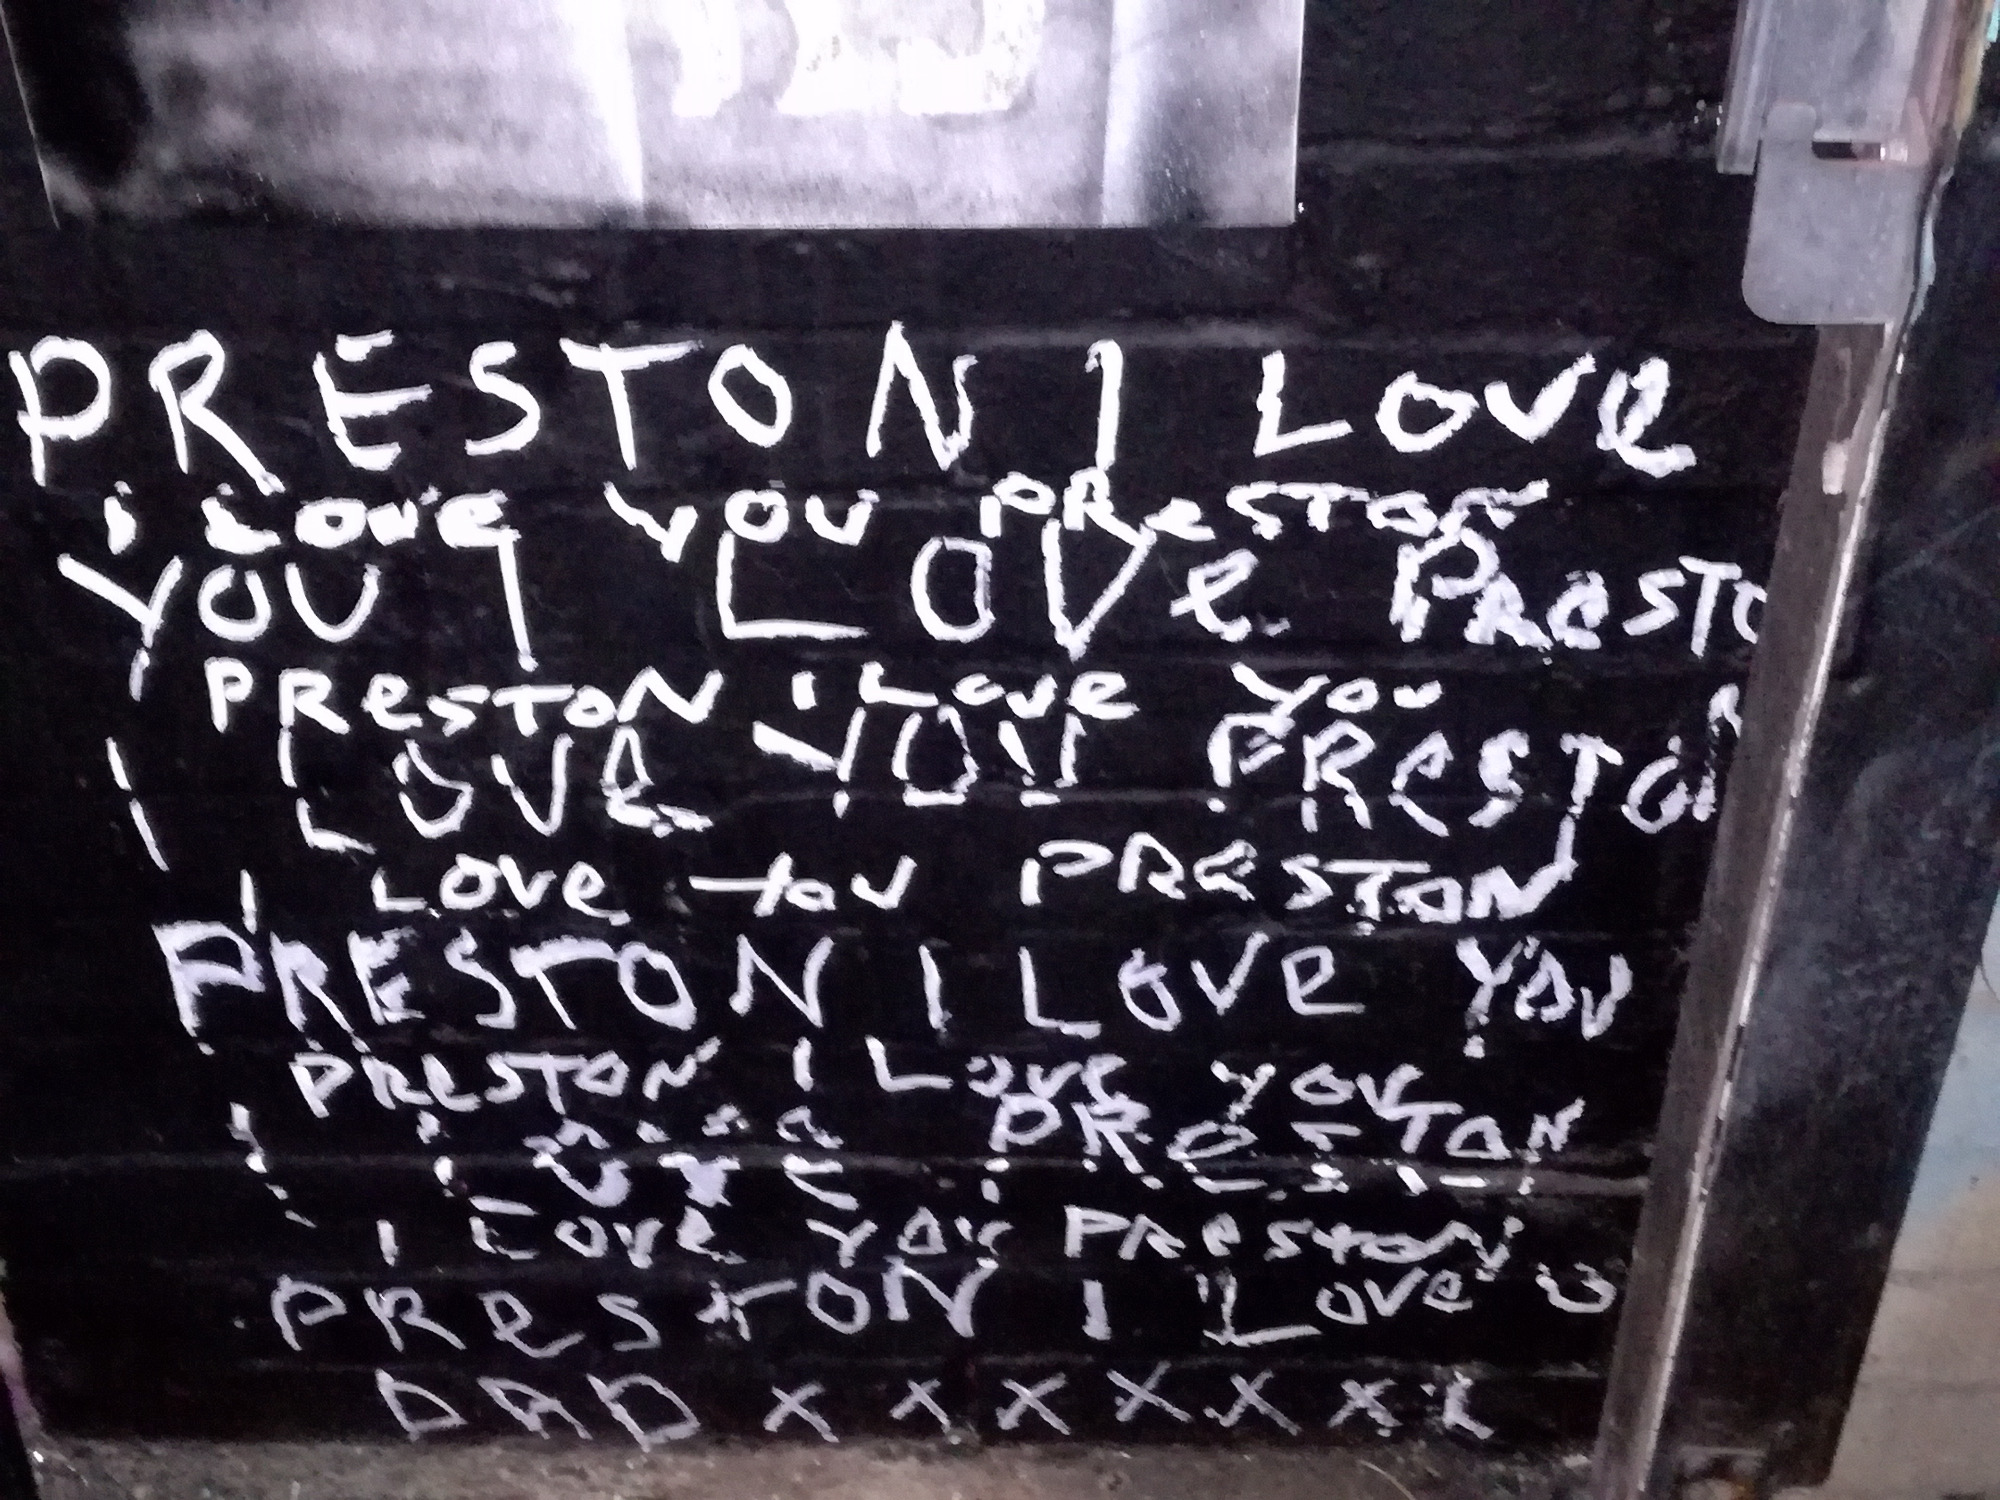 PRESTON I LOVe
i LOVe YOU PResTON
YOU I LOVe PResTO
PResTON i Love YOU
I LOVe YOU PResTON
I LOVe YOU PResTON
PRESTON I LOVe YOU
PResTON I Love YOU
I LOVe PResTON
I LOVe YOU PResTON
PResTON I LOVe U
DAD x x x x x x x